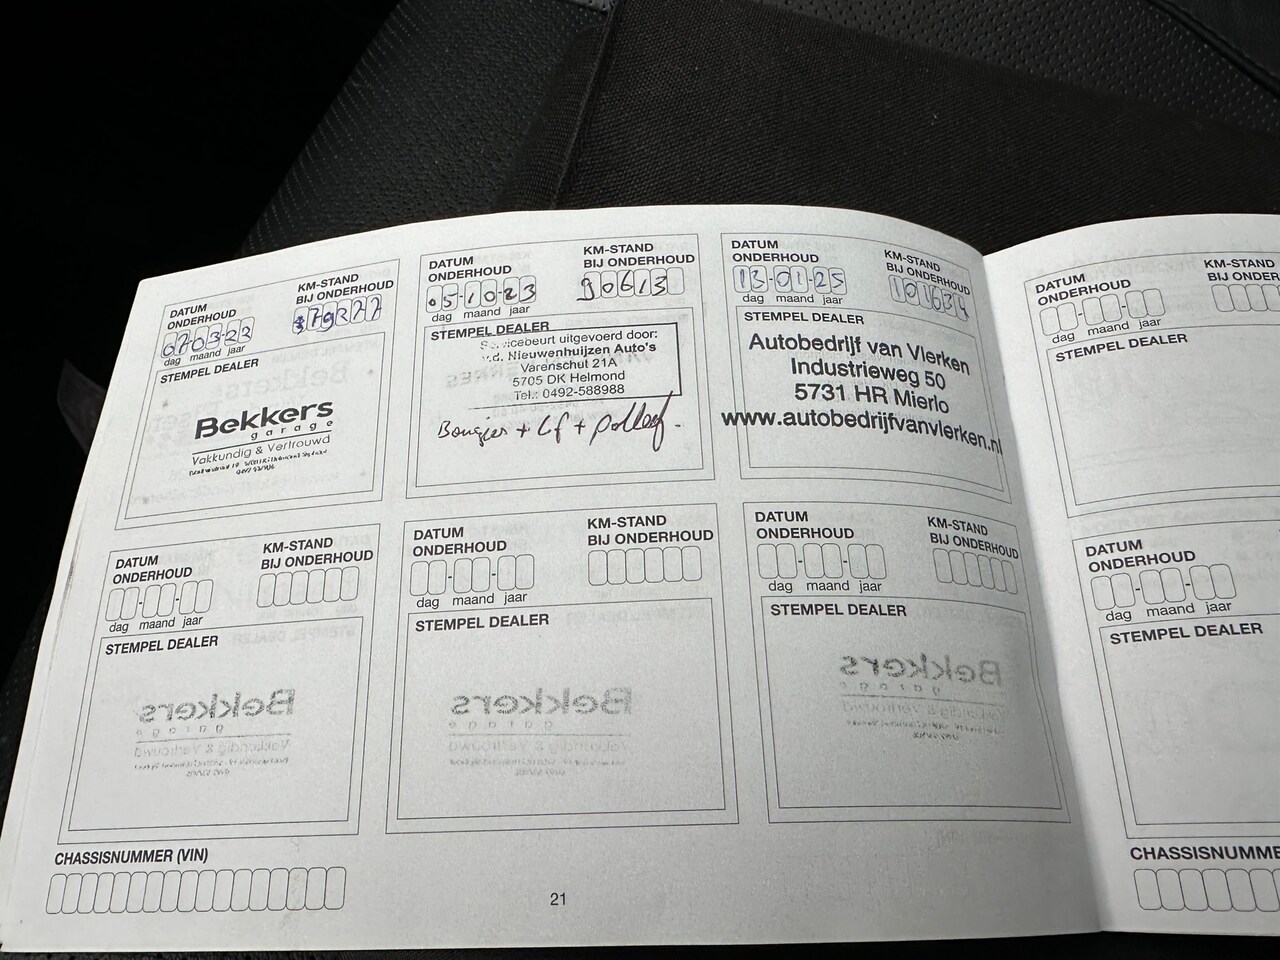 DATUM
ONDERHOUD
KM-STAND
BIJ ONDERHOUD
07-03-23
dag maand jaar
STEMPEL DEALER
Bekkers
garage
Vakkundig & Vertrouwd
DATUM
ONDERHOUD
KM-STAND
BIJ ONDERHOUD
05-10-23
90613
dag maand jaar
STEMPEL DEALER
uitgevoerd door:
v.d. Nieuwenhuijzen Auto's
Varenschut 21A
5705 DK Helmond
Tel.: 0492-588988
Bougies + Lf + pollenf.
DATUM
ONDERHOUD
KM-STAND
BIJ ONDERHOUD
13-01-25
101634
dag maand jaar
STEMPEL DEALER
Autobedrijf van Vlerken
Industrieweg 50
5731 HR Mierlo
www.autobedrijfvanvlerken.nl
DATUM
ONDERHOUD
KM-STAND
dag maand jaar
STEMPEL DEALER
DATUM
ONDERHOUD
KM-STAND
BIJ ONDERHOUD
dag maand jaar
STEMPEL DEALER
DATUM
ONDERHOUD
KM-STAND
BIJ ONDERHOUD
dag maand jaar
STEMPEL DEALER
DATUM
ONDERHOUD
KM-STAND
BIJ ONDERHOUD
dag maand jaar
STEMPEL DEALER
DATUM
ONDERHOUD
dag maand jaar
STEMPEL DEALER
CHASSISNUMMER (VIN)
21
CHASSISNUMME